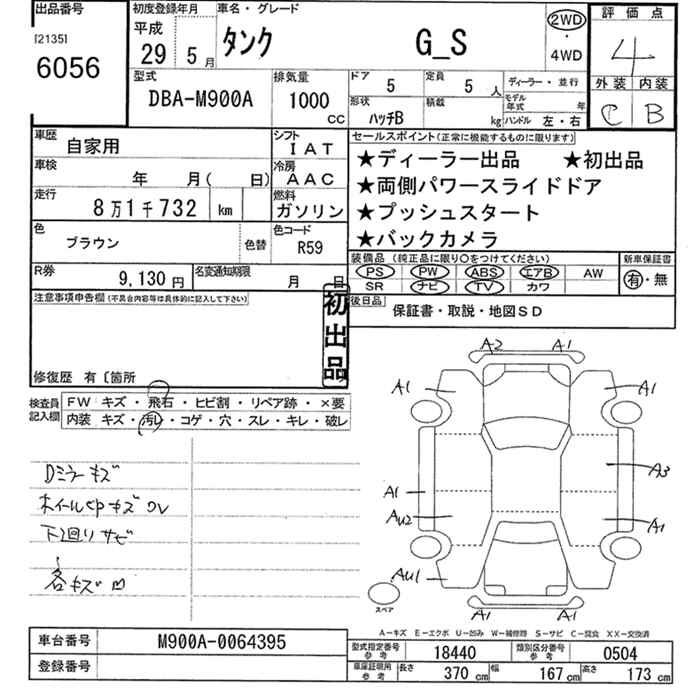 出品番号
[2135]
6056
初度登録年月
平成
29 5 月
車名・グレード
タンク G_S
2WD
・
4WD
評価点
4
外装 内装
C B
型式
DBA-M900A
排気量
1000
CC
ドア 5
定員 5 人
形状 ハッチB
積載 kg
ディーラー・並行
モデル年式 年
ハンドル 左・右
車歴 自家用
シフト IAT
車検 年 月( 日)
冷房 AAC
走行 8万1千732 km
燃料 ガソリン
色 ブラウン 色替
色コード R59
R券 9,130円
名変通知期限 月 日
セールスポイント(正常に機能するものに限ります)
★ディーラー出品 ★初出品
★両側パワースライドドア
★プッシュスタート
★バックカメラ
装備品 (純正品に限り○をつけてください)
新車保証書
PS PW ABS エアB AW
SR ナビ TV カワ
有・無
後日品 保証書・取説・地図SD
注意事項申告欄(不具合内容等は具体的に記入して下さい)
初出品
修復歴 有〔箇所
検査員記入欄
FW キズ・飛石・ヒビ割・リペア跡・×要
内装 キズ・汚レ・コゲ・穴・スレ・キレ・破レ
Dミラーキズ
ホイールcapキズ
下廻りサビ
各キズ凹
A2 A1
A1 A1
A3
A1
Au2 A1
Au1
スペア
A1 A1
A-キズ E-エクボ U-凹み W-補修跡 S-サビ C-腐食 XX-交換済
車台番号 M900A-0064395
登録番号
型式指定番号 参考 18440
類別区分番号 参考 0504
車庫証明用 参考 長さ 370 cm 幅 167 cm 高さ 173 cm